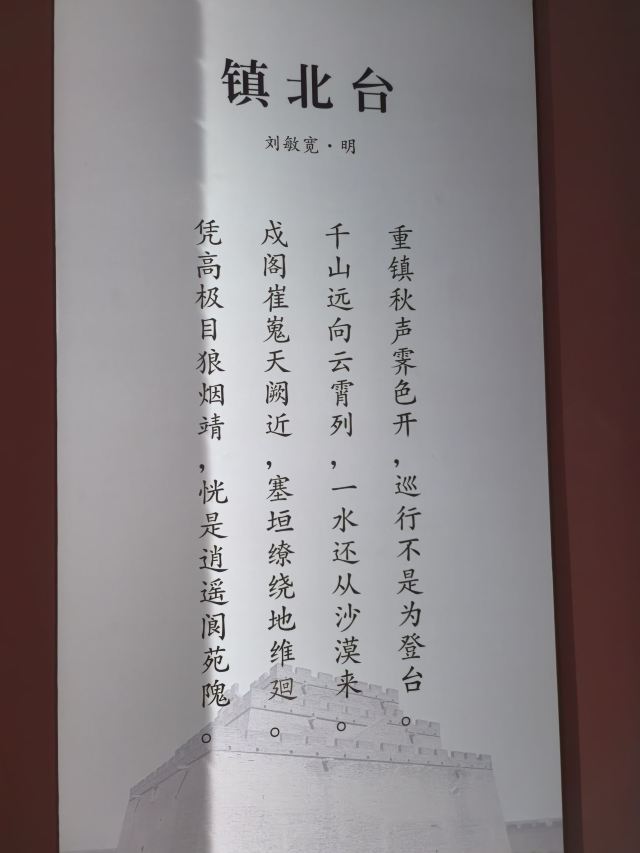 镇北台
刘敏宽·明
重镇秋声霁色开，巡行不是为登台。
千山远向云霄列，一水还从沙漠来。
戍阁崔嵬天阙近，塞垣缭绕地维廻。
凭高极目狼烟靖，恍是逍遥阆苑隗。